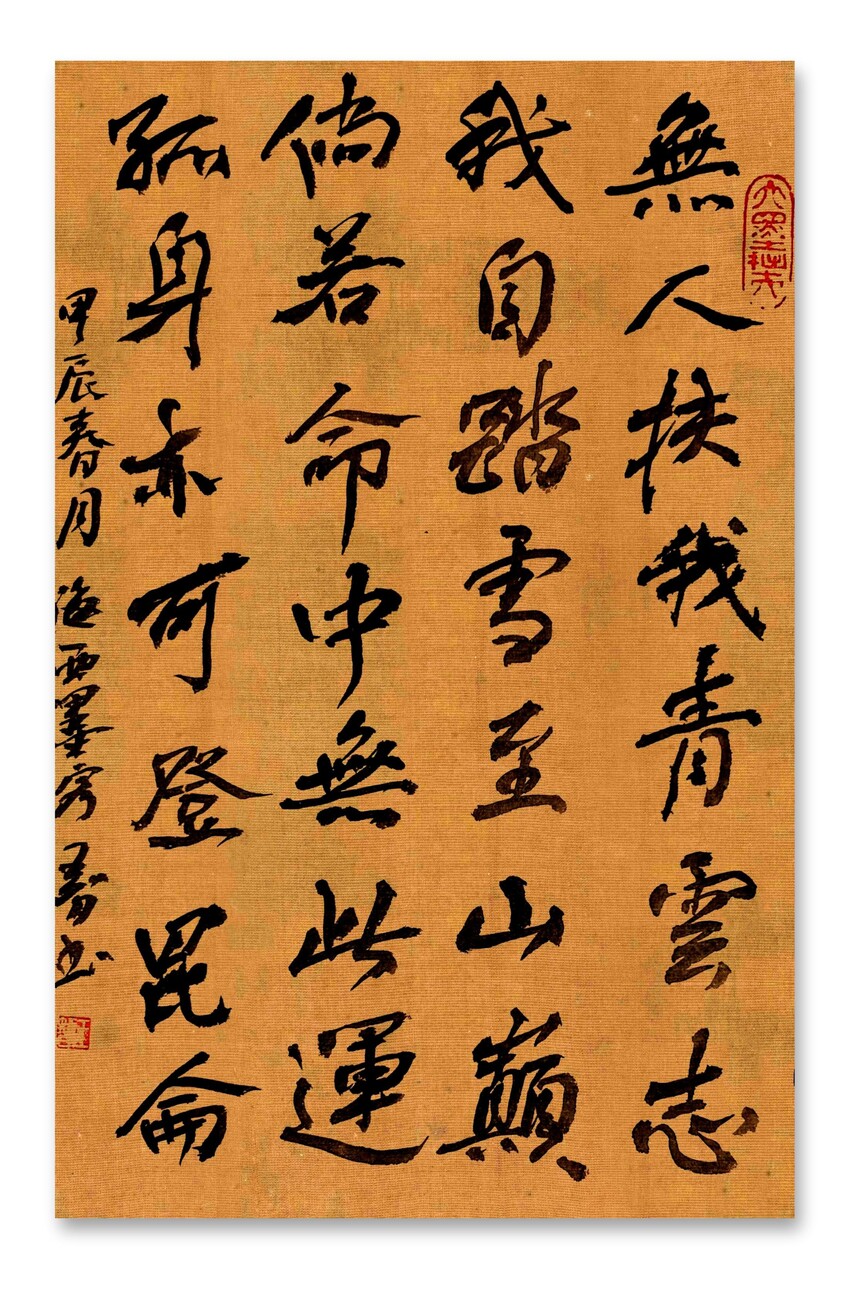 無人扶我青雲志
我自踏雪至山巔
倘若命中無此運
孤身亦可登昆侖
甲辰春月 海西墨客 壽书